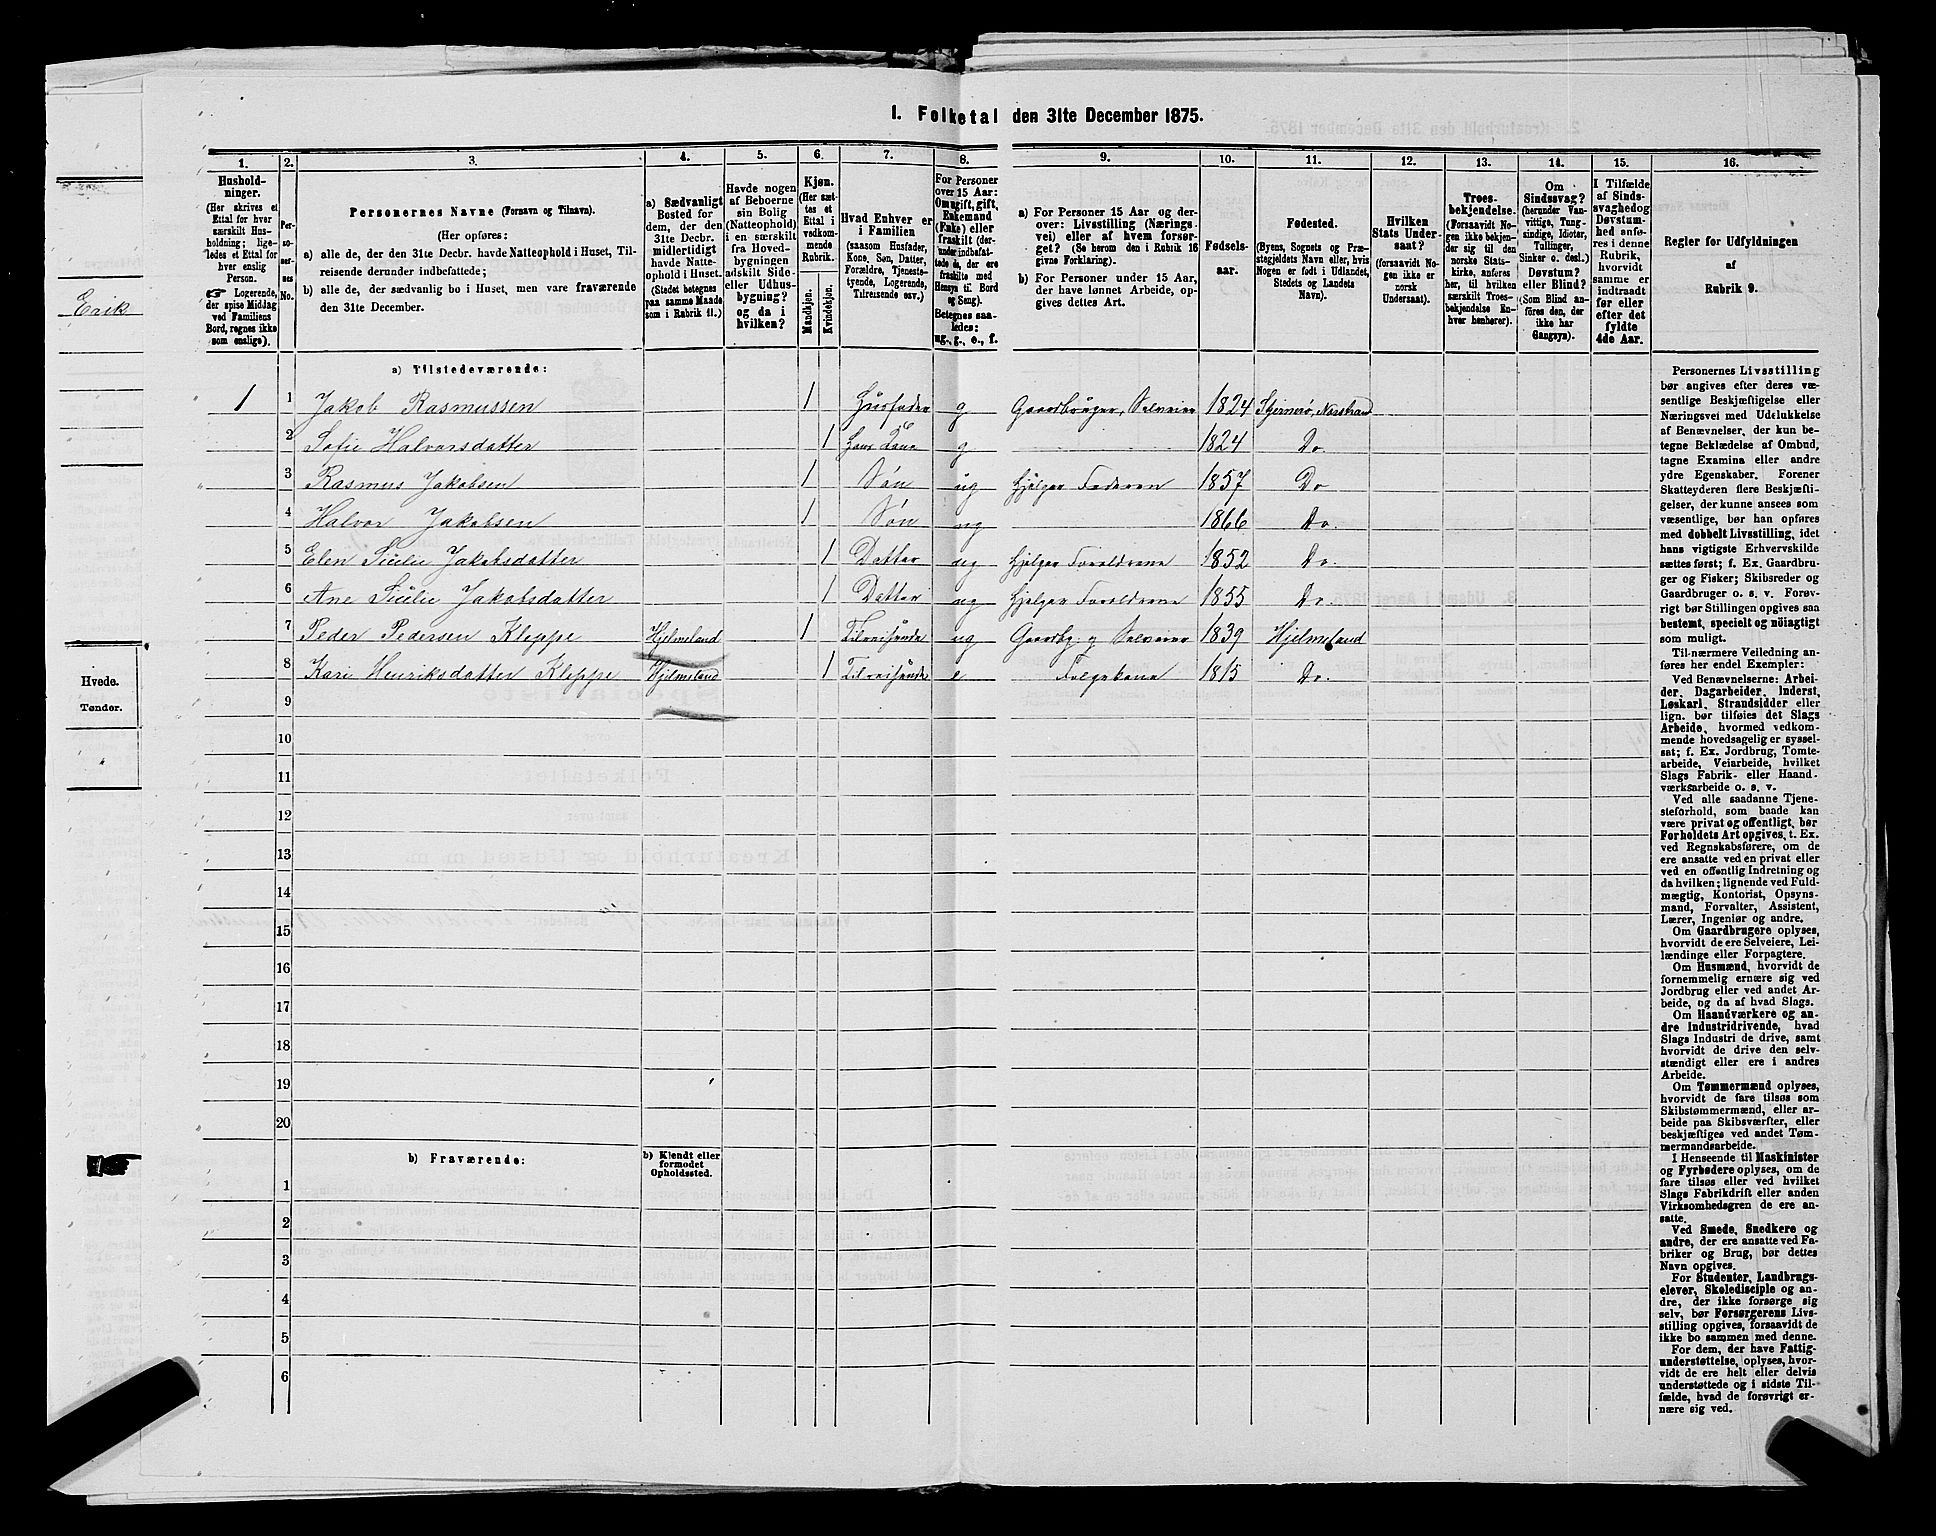 I. Folketal den 31te December 1875.
1. 2. 3. 4. 5. 6. 7. 8. 9. 10. 11. 12. 13. 14. 15. 16.
Hushold-
ninger.
(Her skrives et
Ettal for hver
særskilt Hus-
holdning; lige-
ledes et Ettal for
hver enslig
Person.
☞ Logerende,
der spise Middag
ved Familiens
Bord, regnes ikke
som enslige).
Per-
so-
ner-
nes
No.
Personernes Navne (Fornavn og Tilnavn).
(Her opføres:
a) alle de, der den 31te Decbr. havde Natteophold i Huset, Til-
reisende derunder indbefattede;
b) alle de, der sædvanlig bo i Huset, men vare fraværende
den 31te December.
a) Sædvanligt
Bosted for
dem, der den
31te Decbr.
midlertidigt
havde Natte-
ophold i Huset.
(Stedet betegnes
paa samme Maade
som i Rubrik 11.)
Havde nogen
af Beboerne
sin Bolig
(Natteophold)
i en særskilt
fra Hoved-
bygningen
adskilt Side-
eller Udhus-
bygning?
og da i
hvilken?
Kjøn.
(Her sæt-
tes et
Ettal i
vedkom-
mende
Rubrik.
Mandkjøn.
Kvindekjøn.
Hvad Enhver er
i Familien
(saasom Husfader,
Kone, Søn, Datter,
Forældre, Tjeneste-
tyende, Logerende,
Tilreisende osv.)
For Personer
over 15 Aar:
Om ugift, gift,
Enkemand
(Enke) eller
fraskilt (der-
under indbefat-
tede de, der ere
fraskilte med
Hensyn til Bord
og Seng).
Betegnes saa-
ledes:
ug., g., e., f.
a) For Personer 15 Aar og der-
over: Livsstilling (Nærings-
vei) eller af hvem forsør-
get? (Se herom den i Rubrik 16
givne Forklaring).
b) For Personer under 15 Aar,
der have lønnet Arbeide, op-
gives dettes Art.
Fødsels-
aar.
Fødested.
(Byens, Sognets og Præ-
stegjeldets Navn eller, hvis
Nogen er født i Udlandet,
Stedets og Landets
Navn).
Hvilken
Stats Under-
saat?
(forsaavidt No-
gen ikke er
norsk
Undersaat).
Troes-
bekjendelse.
(Forsaavidt No-
gen ikke bekjen-
der sig til den
norske Stats-
kirke, anføres
her, til hvilken
særskilt Troes-
bekjendelse En-
hver henhører).
Om
Sindssvag?
(herunder Van-
vittige, Tung-
sindige, Idioter,
Tullinger,
Sinker o. desl.)
Døvstum?
eller Blind?
(Som Blind an-
føres den, der
ikke har
Gangsyn).
I Tilfælde
af Sinds-
svaghed og
Døvstum-
hed anfø-
res i denne
Rubrik,
hvorvidt
samme er
indtraadt
før eller
efter det
fyldte
4de Aar.
Regler for Udfyldningen
af
Rubrik 9.
a) Tilstedeværende:
1 1 Jakob Rasmussen 1 Husfader g Gaardbruger, Selveier 1824 Sjernerø, Nærstrand
2 Sofie Halvorsdatter 1 Hans Kone g 1824 Do.
3 Rasmus Jakobsen 1 Søn ug hjelper Faderen 1857 Do
4 Halvor Jakobsen 1 Søn ug 1866 Do.
5 Elen Sicilie Jakobsdatter 1 Datter ug hjelper Forældrene 1852 Do.
6 Ane Sicilie Jakobsdatter 1 Datter ug hjelper Forældrene 1855 Do.
7 Peder Pedersen Kleppe Hjelmeland 1 Tilreisende ug Gaardbr. g Selveier 1839 Hjelmeland
8 Kari Henriksdatter Kleppe Hjelmeland 1 Tilreisende e Folgekone 1815 Do.
9
10
11
12
13
14
15
16
17
18
19
20
b) Fraværende:
b) Kjendt eller
formodet
Opholdssted.
1
2
3
4
5
6
Personernes Livsstilling
bør angives efter deres væ-
sentlige Beskjæftigelse eller
Næringsvei med Udelukkelse
af Benævnelser, der kun be-
tegne Beklædelse af Ombud,
tagne Examina eller andre
ydre Egenskaber. Forener
Skatteyderen flere Beskjæfti-
gelser, der kunne ansees som
væsentlige, bør han opføres
med dobbelt Livsstilling, idet
hans vigtigste Erhvervskilde
sættes først; f. Ex. Gaardbru-
ger og Fisker; Skibsreder og
Gaardbruger o. s. v. Forøv-
rigt bør Stillingen opgives saa
bestemt, specielt og nøiagtigt
som muligt.
Til nærmere Veiledning an-
føres her endel Exempler:
Ved Benævnelserne: Arbei-
der, Dagarbeider, Inderst,
Løskarl, Strandsidder eller
lign. bør tilføies det Slags
Arbeide, hvormed vedkom-
mende hovedsagelig er syssel-
sat; f. Ex. Jordbrug, Tomte-
arbeide, Veiarbeide, hvilket
Slags Fabrik- eller Haand-
værksarbeide o. s. v.
Ved alle saadanne Tjene-
steforhold, som baade kan
være privat og offentligt, bør
Forholdets Art opgives, t. Ex.
ved Regnskabsførere, om de
ere ansatte ved en privat eller
ved en offentlig Indretning og
da hvilken; lignende ved Fuld-
mægtig, Kontorist, Opsyns-
mand, Forvalter, Assistent,
Lærer, Ingeniør og andre.
Om Gaardbrugere oplyses,
hvorvidt de ere Selveiere, Lei-
lændinge eller Forpagtere.
Om Husmænd, hvorvidt de
fornemmelig ernære sig ved
Jordbrug eller ved andet Ar-
beide, og da af hvad Slags.
Om Haandværkere og an-
dre Industridrivende, hvad
Slags Industri de drive, samt
hvorvidt de drive den selv-
stændigt eller ere i andres
Arbeide.
Om Tømmermænd oplyses,
hvorvidt de fare tilsøs som
Skibstømmermænd, eller ar-
beide paa Skibsværfter, eller
beskjæftiges ved andet Tøm-
mermandsarbeide.
I Henseende til Maskinister
og Fyrbødere oplyses, om de
fare tilsøs eller ved hvilket
Slags Fabrikdrift eller anden
Virksomhedsgren de ere an-
satte.
Ved Smede, Snedkere og
andre, der ere ansatte ved Fa-
briker og Brug, bør dettes
Navn opgives.
For Studenter, Landbrugs-
elever, Skoledisciple og an-
dre, der ikke forsørge sig
selv, bør Forsørgerens Livs-
stilling opgives, forsaavidt de
ikke bo sammen med denne.
For dem, der have Fattig-
understøttelse, oplyses, hvor-
vidt de ere helt eller delvis
understøttede og i sidste Til-
fælde, hvad de forøvrigt er-
nære sig ved.
Erik
Hvede.
Tønder.